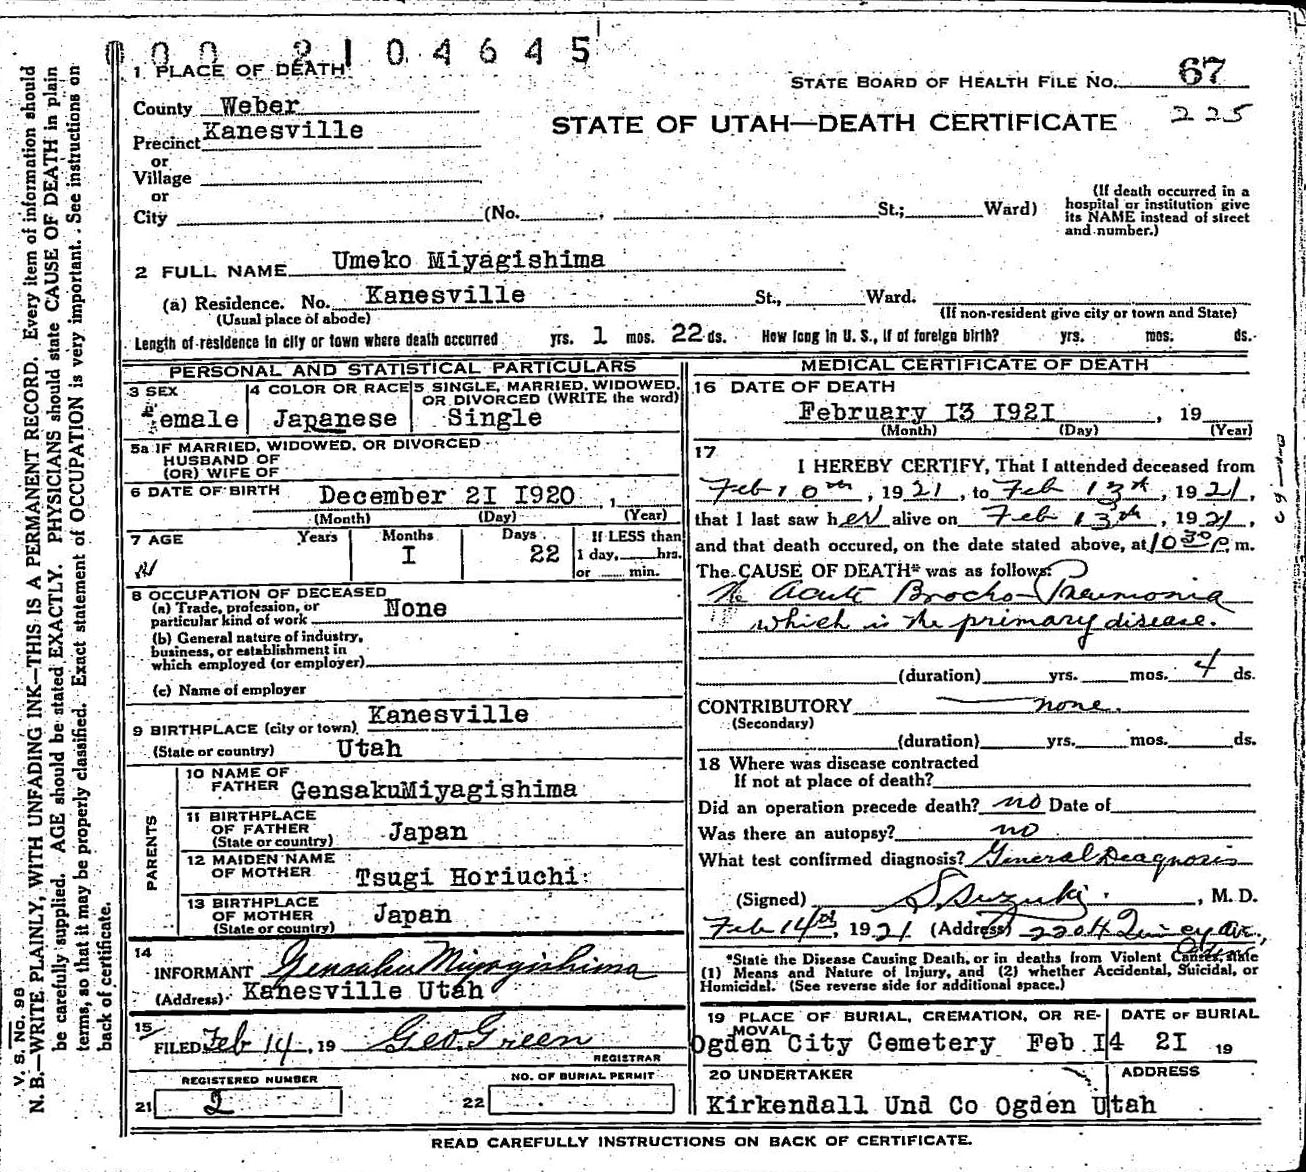 000 2104645
1 PLACE OF DEATH
STATE BOARD OF HEALTH FILE NO. 67
County Weber
STATE OF UTAH—DEATH CERTIFICATE 225
Precinct Kanesville
or
Village
or
City (No. , St.; Ward)
(If death occurred in a
hospital or institution give
its NAME instead of street
and number.)
2 FULL NAME Umeko Miyagishima
(a) Residence. No. Kanesville St., Ward.
(Usual place of abode) (If non-resident give city or town and State)
Length of residence in city or town where death occurred yrs. 1 mos. 22 ds. How long in U. S., if of foreign birth? yrs. mos. ds.
PERSONAL AND STATISTICAL PARTICULARS
3 SEX
emale
4 COLOR OR RACE
Japanese
5 SINGLE, MARRIED, WIDOWED,
OR DIVORCED (WRITE the word)
Single
5a IF MARRIED, WIDOWED, OR DIVORCED
HUSBAND OF
(OR) WIFE OF
6 DATE OF BIRTH December 2I I920 , 1
(Month) (Day) (Year)
7 AGE Years Months Days If LESS than
I 22 1 day, hrs.
or min.
8 OCCUPATION OF DECEASED
(a) Trade, profession, or
particular kind of work None
(b) General nature of industry,
business, or establishment in
which employed (or employer)
(c) Name of employer
9 BIRTHPLACE (city or town) Kanesville
(State or country) Utah
PARENTS
10 NAME OF
FATHER GensakuMiyagishima
11 BIRTHPLACE
OF FATHER
(State or country) Japan
12 MAIDEN NAME
OF MOTHER Tsugi Horiuchi
13 BIRTHPLACE
OF MOTHER
(State or country) Japan
14
INFORMANT Gensaku Miyagishima
(Address) Kanesville Utah
15
FILED Feb 14, 19 Geo. Green
REGISTRAR
REGISTERED NUMBER NO. OF BURIAL PERMIT
21 2 22
MEDICAL CERTIFICATE OF DEATH
16 DATE OF DEATH
February I3 I92I , 19
(Month) (Day) (Year)
17
I HEREBY CERTIFY, That I attended deceased from
Feb 10th, 1921, to Feb 13th, 1921,
that I last saw her alive on Feb 13th, 1921,
and that death occured, on the date stated above, at 10 30 P. m.
The CAUSE OF DEATH* was as follows:
The Acute Brocho-Pneumonia
which is the primary disease.
(duration) yrs. mos. 4 ds.
CONTRIBUTORY none.
(Secondary)
(duration) yrs. mos. ds.
18 Where was disease contracted
If not at place of death?
Did an operation precede death? no Date of
Was there an autopsy? no
What test confirmed diagnosis? General Deagnosis
(Signed) S. Suzuki , M. D.
Feb 14th, 1921 (Address) 2204 Quincy Ave.,
Ogden
*State the Disease Causing Death, or in deaths from Violent Causes, state
(1) Means and Nature of Injury, and (2) whether Accidental, Suicidal, or
Homicidal. (See reverse side for additional space.)
19 PLACE OF BURIAL, CREMATION, OR RE-
MOVAL
DATE OF BURIAL
Ogden City Cemetery Feb I4 2I 19
20 UNDERTAKER ADDRESS
Kirkendall Und Co Ogden Utah
READ CAREFULLY INSTRUCTIONS ON BACK OF CERTIFICATE.
V. S. No. 98
N. B.—WRITE PLAINLY, WITH UNFADING INK—THIS IS A PERMANENT RECORD. Every item of information should
be carefully supplied. AGE should be stated EXACTLY. PHYSICIANS should state CAUSE OF DEATH in plain
terms, so that it may be properly classified. Exact statement of OCCUPATION is very important. See instructions on
back of certificate.